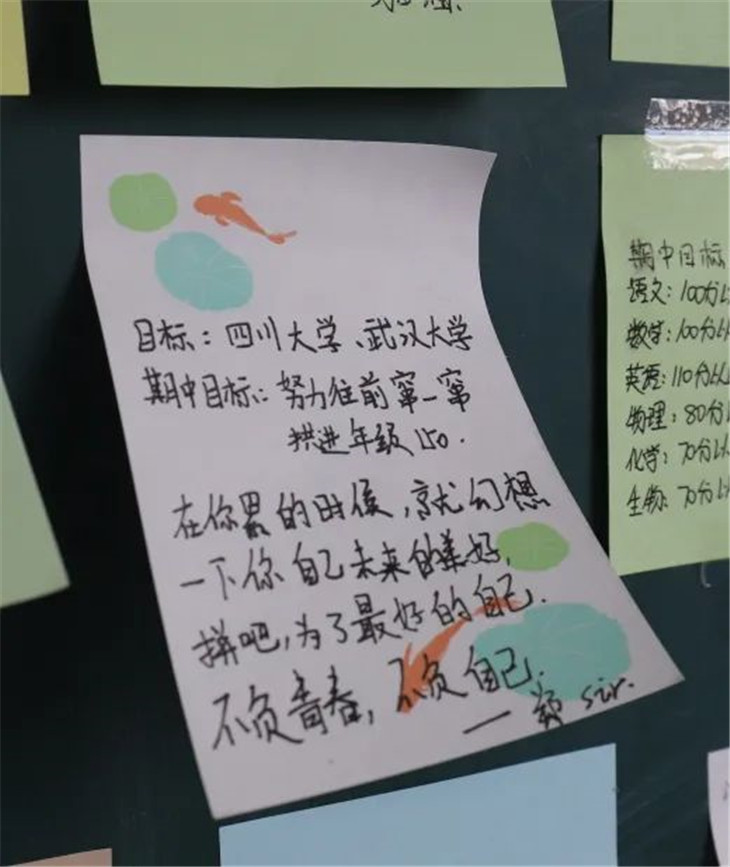 目标：四川大学、武汉大学
期中目标：努力往前窜一窜
拱进年级150.
在你累的时候，就幻想
一下你自己未来的美好，
拼吧，为了最好的自己.
不负青春，不负自己.
— 郑 sir.
期中目标
语文：100分以
数学：100分以
英语：110分以
物理：80分以
化学：70分以
生物：70分以